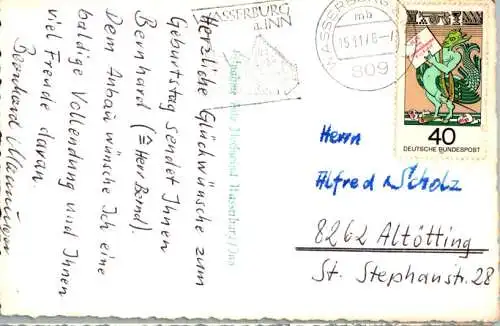 Herzliche Glückwünsche zum
Geburtstag sendet Ihnen
Bernhard (≙ Herr Bernd).
Dem Anbau wünsche Ich eine
baldige Vollendung und Ihnen
viel Freude daran.
Bernhard
WASSERBURG
a. INN
WASSERBURG
mb
15.11.76
809
40
DEUTSCHE BUNDESPOST
Herrn
Alfred Scholz
8262 Altötting
St. Stephanstr. 28